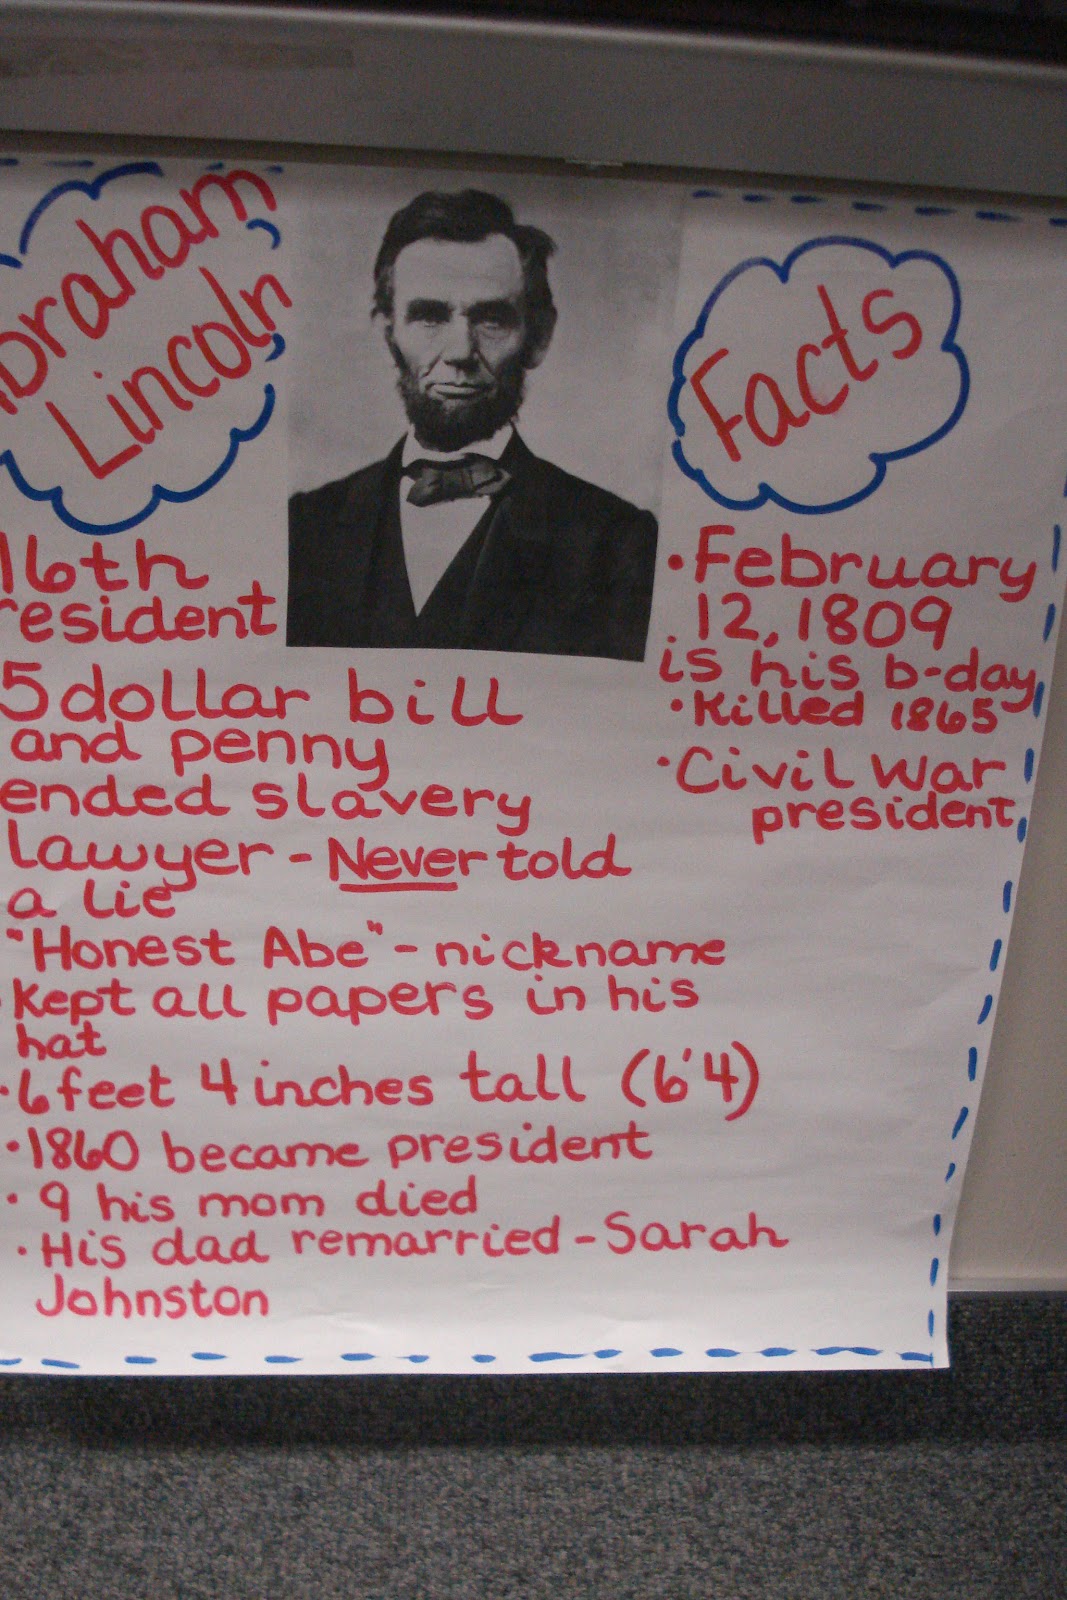 braham
Lincoln
Facts
16th
resident
5 dollar bill
and penny
ended slavery
lawyer - Never told
a lie
"Honest Abe" - nickname
• Kept all papers in his
hat
• 6 feet 4 inches tall (6'4)
• 1860 became president
• 9 his mom died
• His dad remarried - Sarah
Johnston
• February
12, 1809
is his b-day
• Killed 1865
• Civil War
president